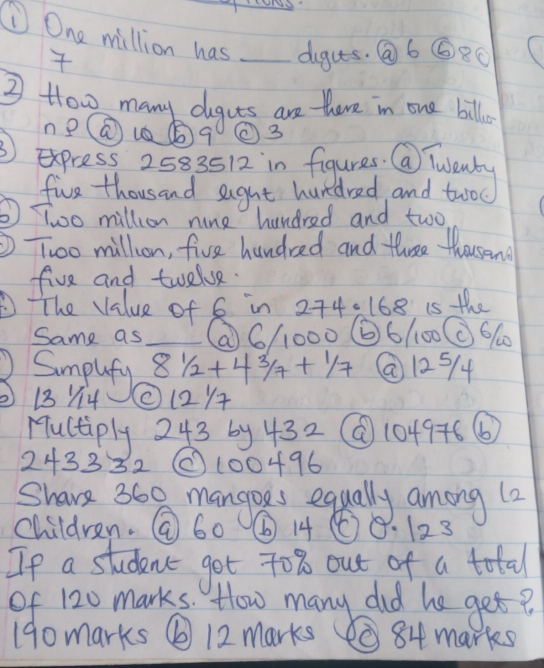 ① One million has ___ digits. ⓐ 6 ⓑ 8 ⓒ
7
② How many digits are there in one billio
n? ⓐ 10 ⓑ 9 ⓒ 3
Express 2583512 in figures. ⓐ Twenty
five thousand eight hundred and two ⓒ
ⓑ Two million nine hundred and two
Two million, five hundred and three thousand
five and twelve.
The Value of 6 in 274.168 is the
Same as ___ ⓐ 6/1000 ⓑ 6/100 ⓒ 6/10
Simplify 8 1/2 + 4 3/7 + 1/7 ⓐ 12 5/4
13 1/14 ⓒ 12 1/7
Multiply 243 by 432 ⓐ 104976 ⓑ
243332 ⓒ 100496
Share 360 mangoes equally among 12
Children. ⓐ 60 ⓑ 14 ⓒ 0.123
If a student got 70% out of a total
of 120 marks. How many did he get?
190 marks ⓑ 12 marks ⓒ 84 marks